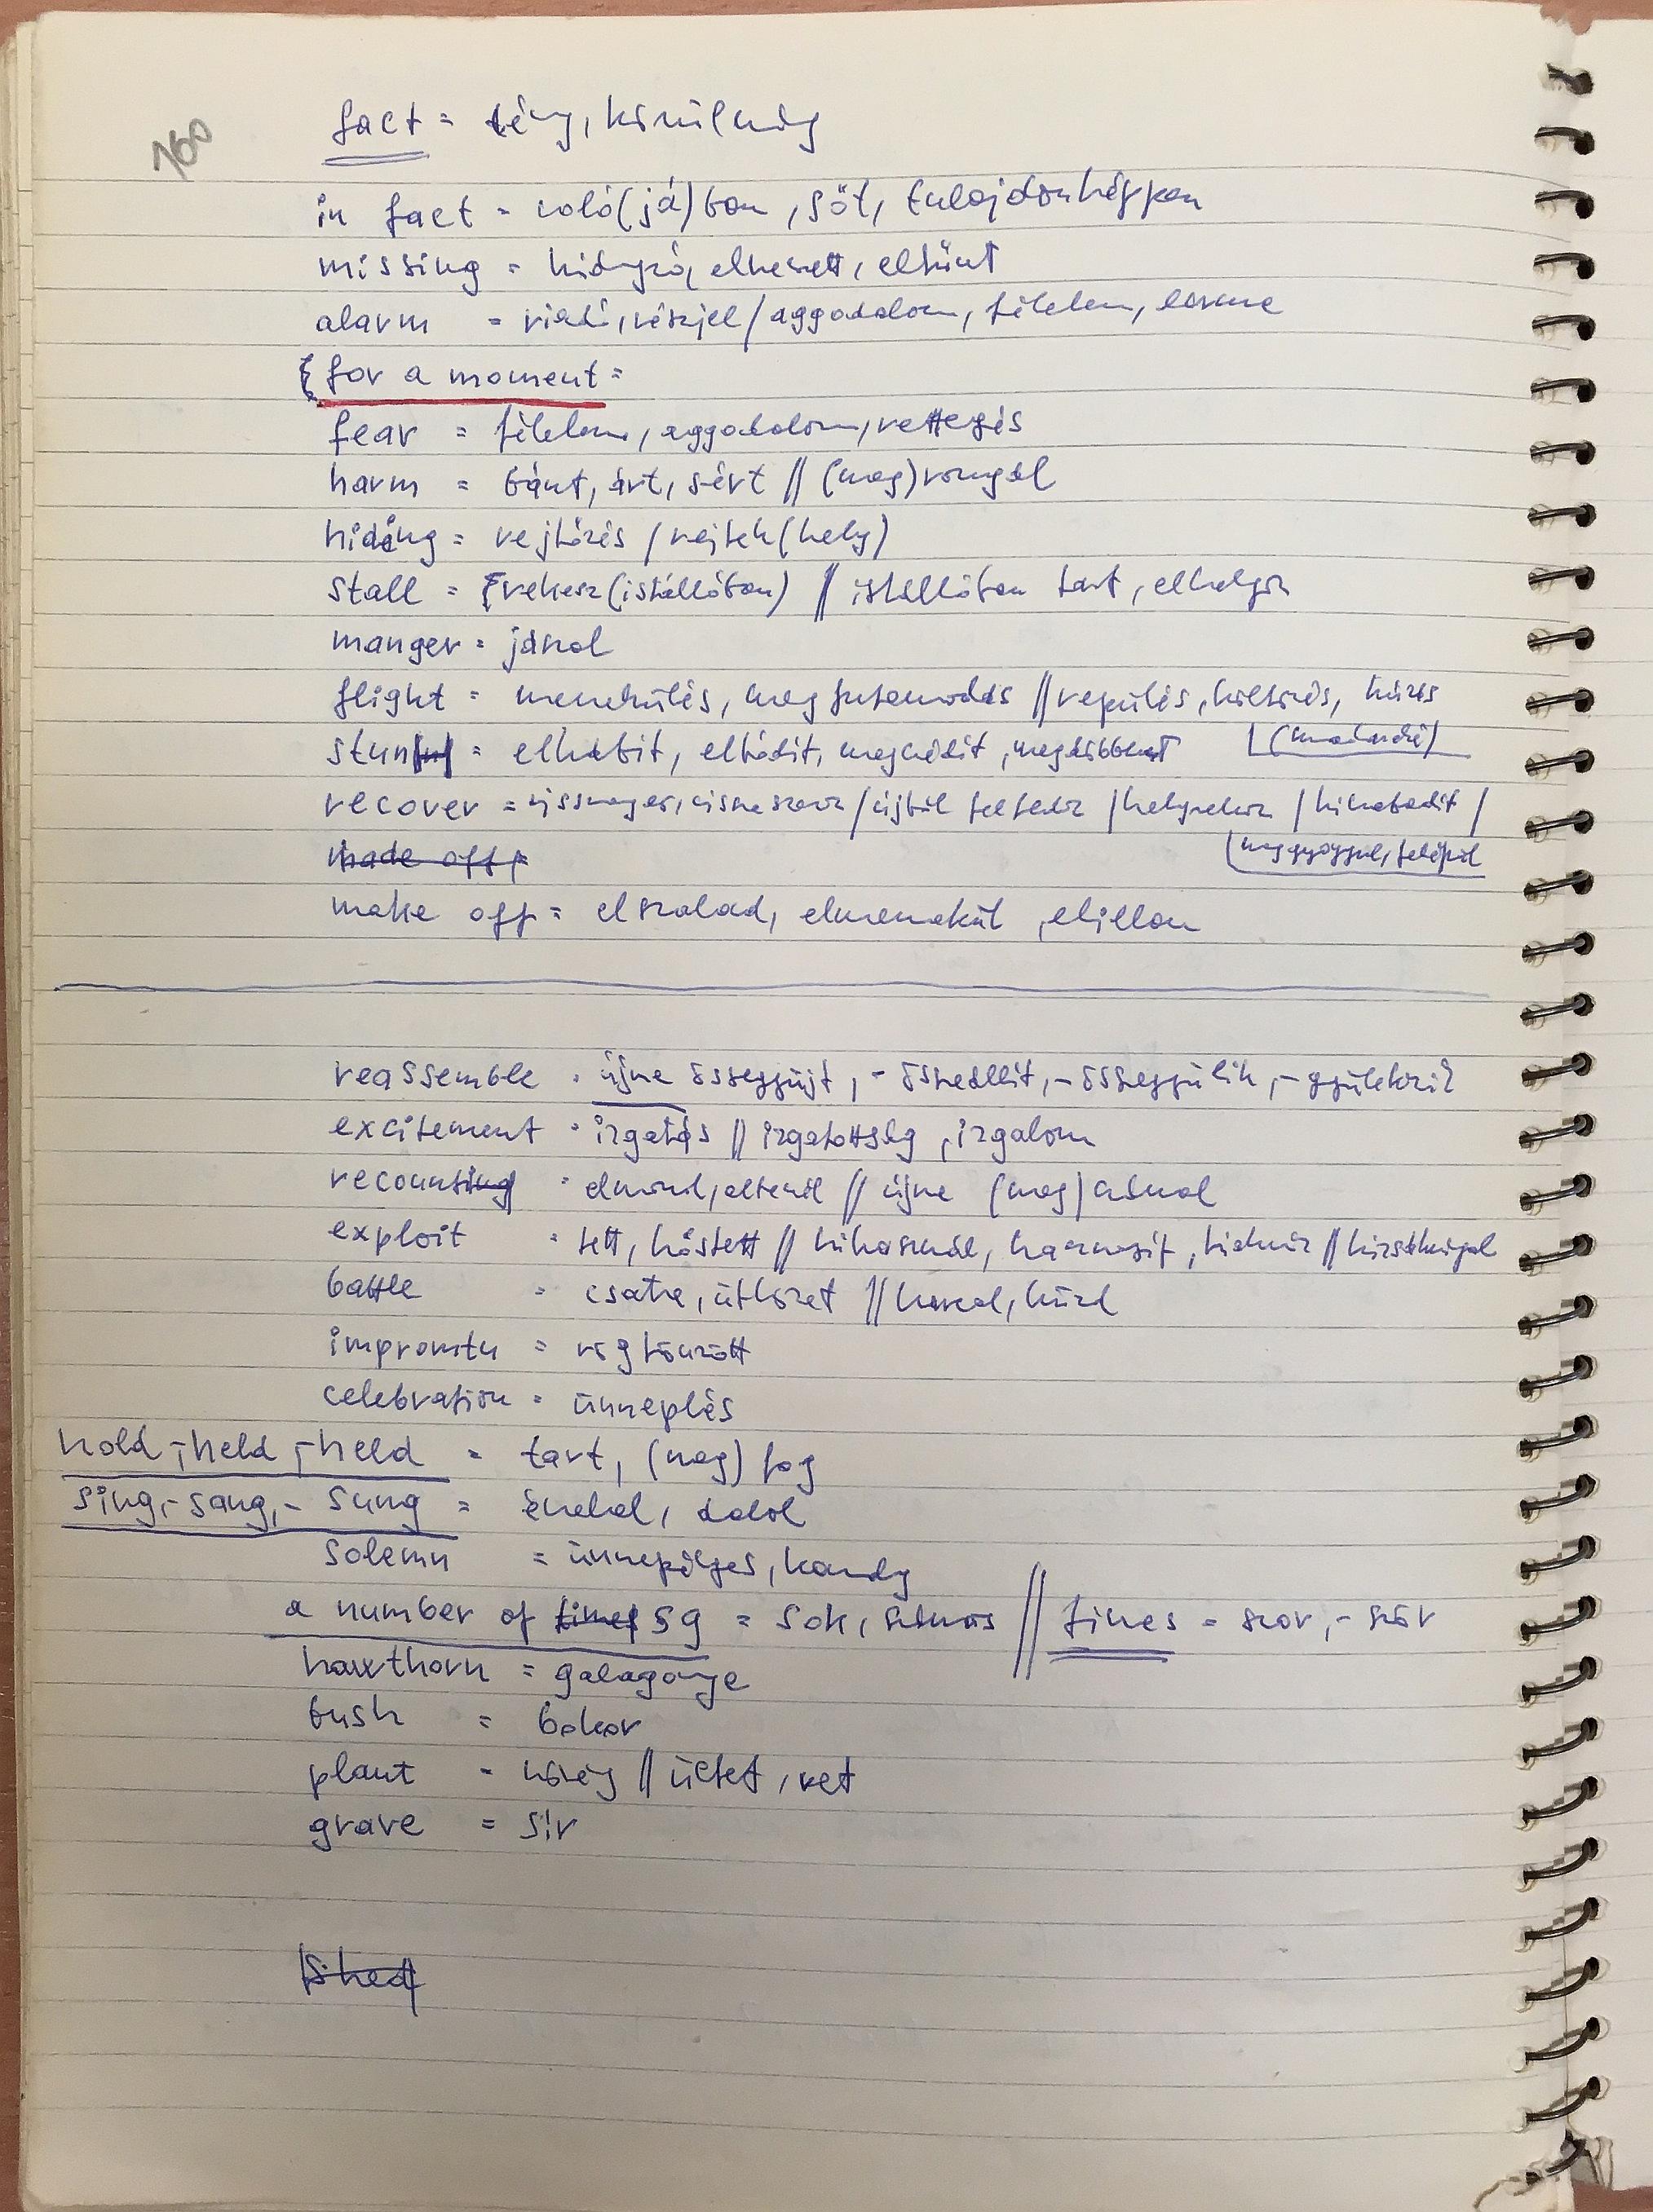 160
fact = tény, körülmény
in fact = való(já)ban, sőt, tulajdonképpen
missing = hiányzó, elveszett, eltűnt
alarm = riadó, vészjel / aggodalom, félelem, lárma
for a moment =
fear = félelem, aggodalom, rettegés
harm = bánt, árt, sért // (meg)rongál
hiding = rejtőzés / rejtek(hely)
stall = rekesz (istállóban) // istállóban tart, elhelyez
manger = jászol
flight = menekülés, megfutamodás // repülés, költözés, húzás
(madaraké)
stun = elkábít, elbódít, megrendít, megdöbbent
recover = visszanyer, visszaszerez / újból felfedez / helyrehoz / kiszabadít /
meggyógyul, felépül
made off =
make off = elszalad, elmenekül, elillan
reassemble = újra összegyűjt, - összeállít, - összegyűlik, - gyülekezik
excitement = izgatás // izgatottság, izgalom
recounting = elmond, elbeszél // újra (meg)számol
exploit = tett, hőstett // kihasznál, kiaknáz // kizsákmányol
battle = csata, ütközet // harcol, küzd
impromtu = rögtönzött
celebration = ünneplés
hold, -held, -held = tart, (meg)fog
sing, - sang, - sung = énekel, dalol
solemn = ünnepélyes, komoly
a number of times sg = sok, számos // times = -szor, -ször
hawthorn = galagonya
bush = bokor
plant = növény // ültet, vet
grave = sír
shed